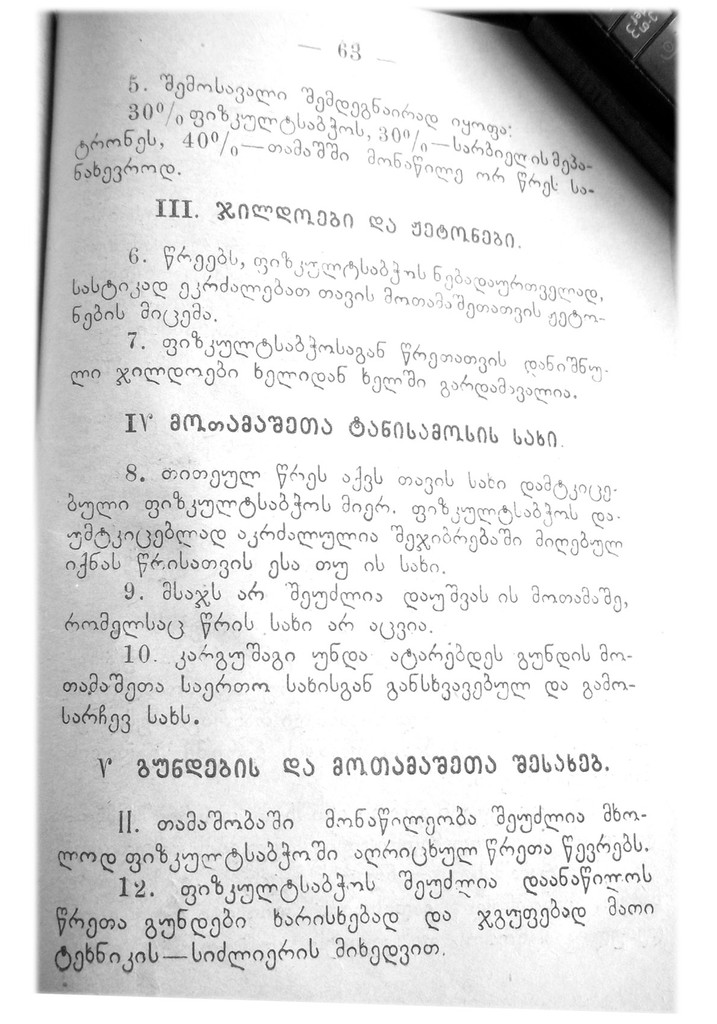 — 63 —
5. შემოსავალი შემდეგნაირად იყოფა:
30% ფიზკულტსაბჭოს, 30%—სარბიელის მეპა-
ტრონეს, 40%—თამაშში მონაწილე ორ წრეს სა-
ნახევროდ.
III. ჯილდოები და ჟეტონები.
6. წრეებს, ფიზკულტსაბჭოს ნებადაურთველად,
სასტიკად ეკრძალებათ თავის მოთამაშეთათვის ჟეტო-
ნების მიცემა.
7. ფიზკულტსაბჭოსაგან წრეთათვის დანიშნუ-
ლი ჯილდოები ხელიდან ხელში გარდამავალია.
IV მოთამაშეთა ტანისამოსის სახი.
8. თითეულ წრეს აქვს თავის სახი დამტკიცე-
ბული ფიზკულტსაბჭოს მიერ. ფიზკულტსაბჭოს და-
უმტკიცებლად აკრძალულია შეჯიბრებაში მიღებულ
იქნას წრისათვის ესა თუ ის სახი.
9. მსაჯს არ შეუძლია დაუშვას ის მოთამაშე,
რომელსაც წრის სახი არ აცვია.
10. კარგუშაგი უნდა ატარებდეს გუნდის მო-
თამაშეთა საერთო სახისგან განსხვავებულ და გამო-
სარჩევ სახს.
V გუნდების და მოთამაშეთა შესახებ.
11. თამაშობაში მონაწილეობა შეუძლია მხო-
ლოდ ფიზკულტსაბჭოში აღრიცხულ წრეთა წევრებს.
12. ფიზკულტსაბჭოს შეუძლია დაანაწილოს
წრეთა გუნდები ხარისხებად და ჯგუფებად მათი
ტეხნიკის—სიძლიერის მიხედვით.